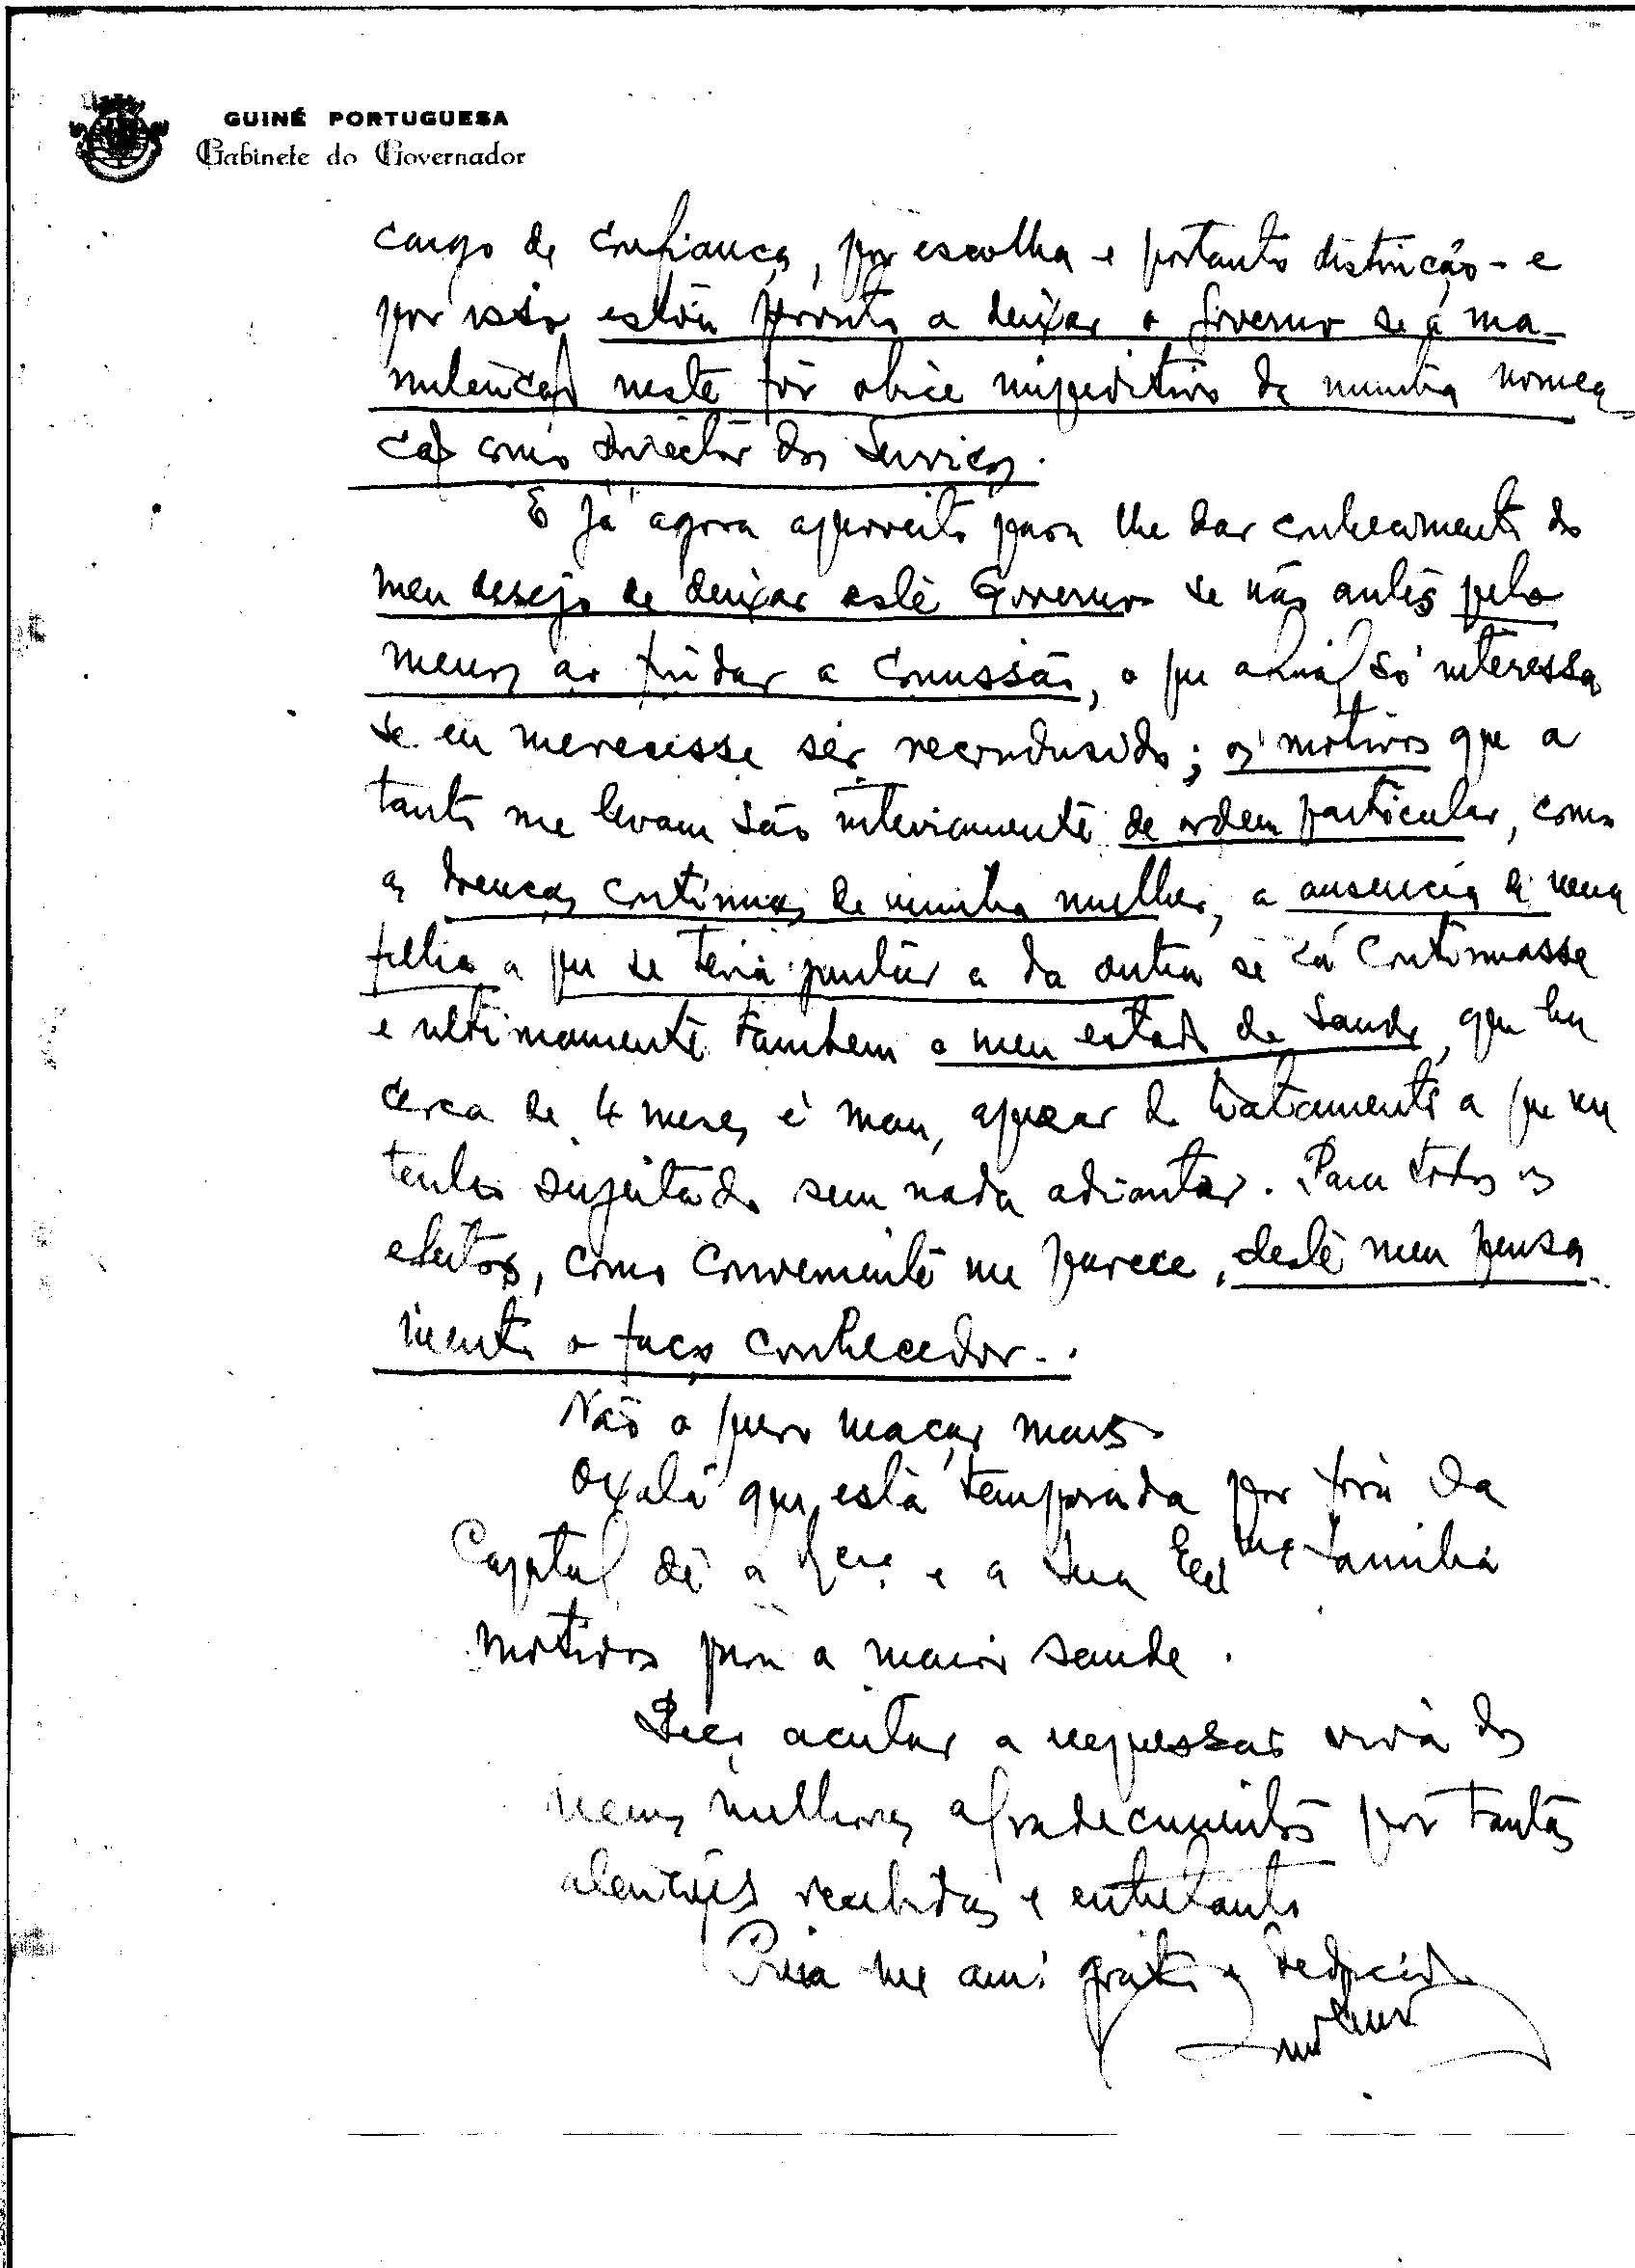 GUINÉ PORTUGUESA
Gabinete do Governador
cargo de confiança, por escolha e portanto distinção - e
por isso estou pronto a deixar o Governo se a ma-
nutenção neste fôr obice impeditivo da minha nomea-
ção como Director dos Serviços.
E já agora aproveito para lhe dar conhecimento do
meu desejo de deixar este Governo se não antes pelo
menos ao findar a comissão, o que afinal só interessa
se eu merecesse ser reconduzido; os motivos que a
tanto me levam são inteiramente de ordem particular, como
as doenças continuas de minha mulher, a ausencia de uma
filha a que se teria juntar a da outra se cá continuasse
e ultimamente tambem o meu estado de saude, que ha
cerca de 4 meses é mau, apezar do tratamento a que me
tenho sujeitado sem nada adiantar. Para todos os
efeitos, como conveniente me parece, deste meu pensa-
mento o faço conhecedor.
Não o quero maçar mais.
Oxalá que esta temporada por fora da
Capital dê a V. Ex.ª e a Sua Exma Familia
motivos para a maior saude.
Peço aceitar a expressão viva dos
meus melhores agradecimentos por tantas
atenções recebidas e entretanto
Creia-me am.º grato e dedicado